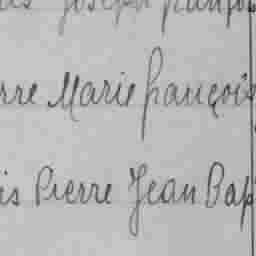 is Joseph françoi
rre Marie françois
is Pierre Jean Bap